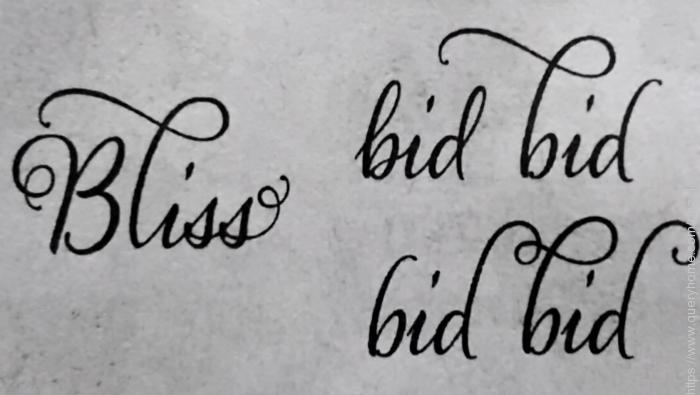 Bliss
bid bid
bid bid
https://www.queryhome.com/